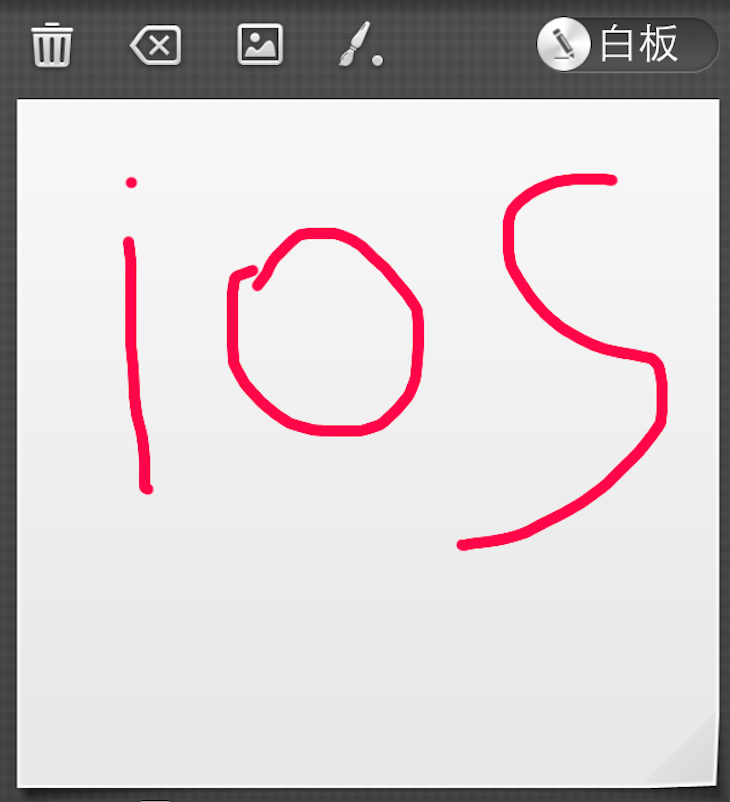 白板
iOS